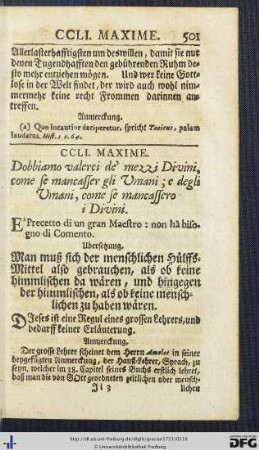 CCLI. MAXIME. 501
Allerlasterhafftigsten um deswillen, damit sie nur
denen Tugendhafften den gebührenden Ruhm de-
sto mehr entziehen mögen. Und wer keine Gott-
lose in der Welt findet, der wird auch wohl nim-
mermehr keine recht Frommen darinnen an-
treffen.
Anmerckung.
(a) Quo incautior deciperetur, spricht Tacitus, palam
laudatus. Hist. 1. c. 64.
CCLI. MAXIME.
Dobbiamo valerci de' mezzi Divini,
come se mancasser gli Umani; e degli
Umani, come se mancassero
i Divini.
E' Precetto di un gran Maestro: non hà biso-
gno di Comento.
Ubersetzung.
Man muß sich der menschlichen Hülffs-
Mittel also gebrauchen, als ob keine
himmlischen da wären, und hingegen
der himmlischen, als ob keine mensch-
lichen zu haben wären.
Dieses ist eine Regul eines grossen Lehrers, und
bedarff keiner Erläuterung.
Anmerckung.
Der grosse Lehrer scheinet dem Herrn Amelot in seiner
beygefügten Anmerckung, der Hauß-Lehrer, Syrach, zu
seyn, welcher im 38. Capitel seines Buchs erstlich lehret,
daß man die von GOtt geordneten zeitlichen oder mensch-
Ii 3 lichen
http://dl.ub.uni-freiburg.de/diglit/gracian1723/0519
© Universitätsbibliothek Freiburg
gefördert durch die
DFG